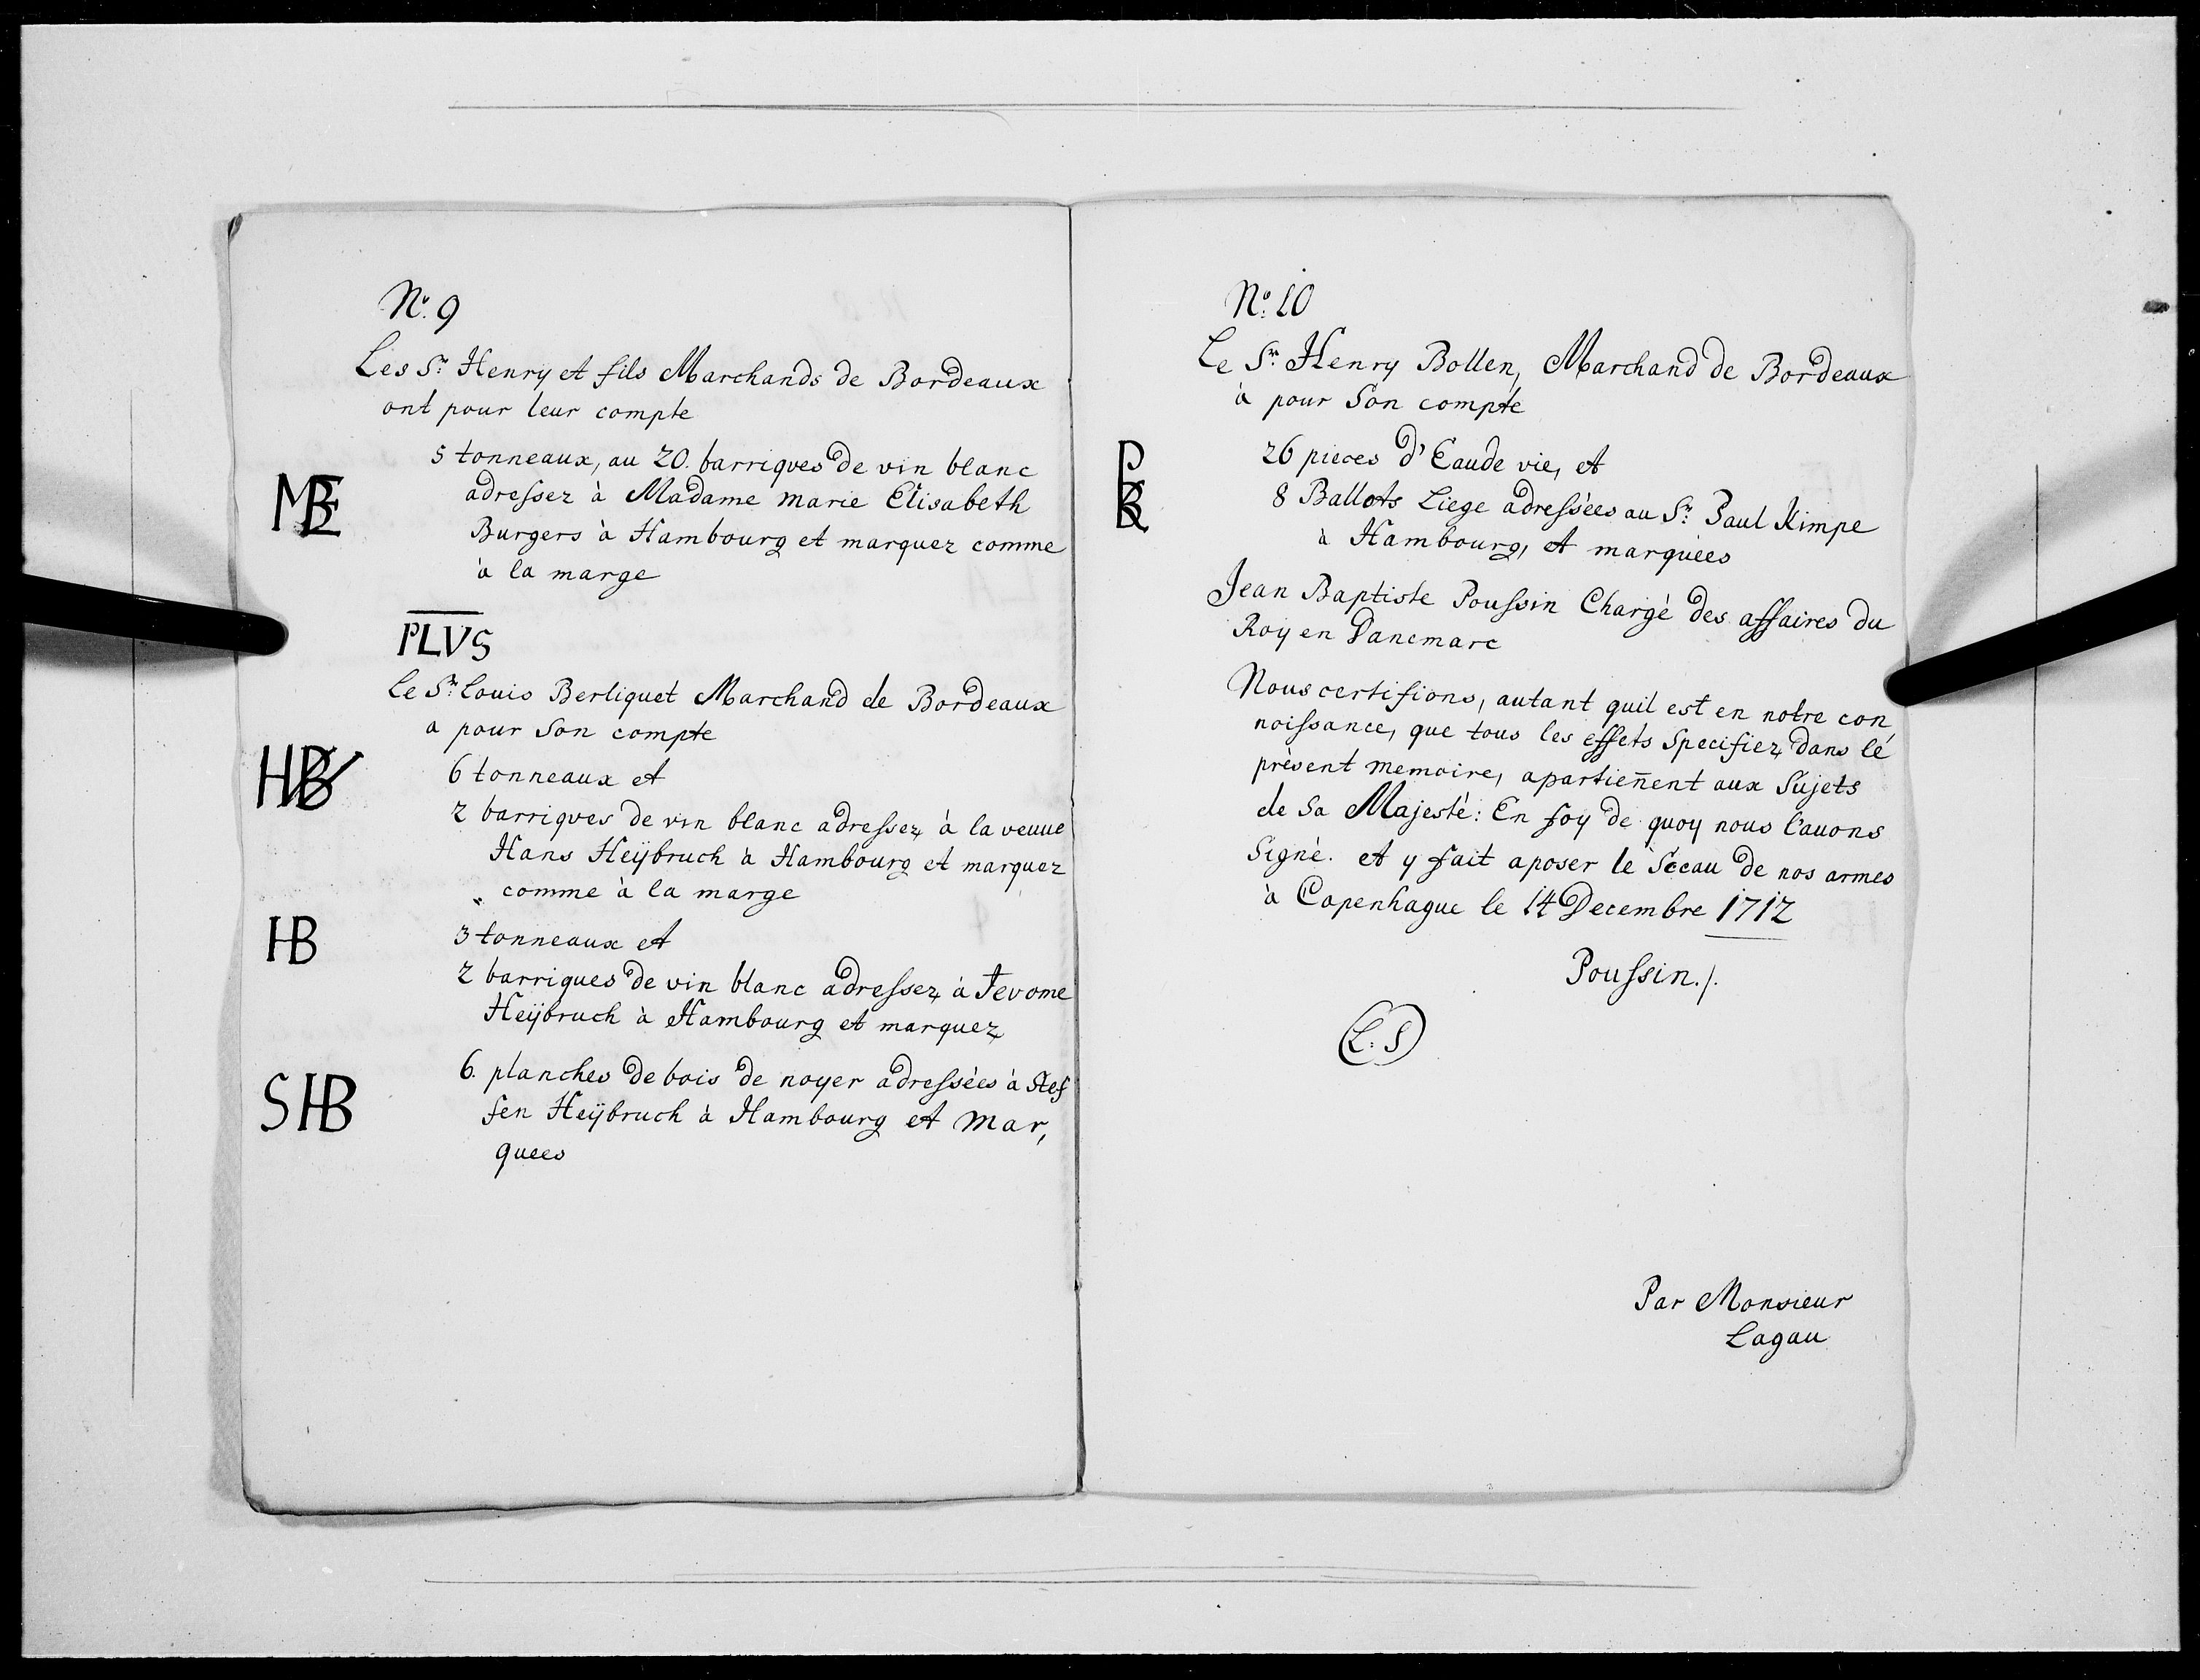 N.º 9
Les S.r Henry et fils Marchands de Bordeaux
ont pour leur compte
5 tonneaux, au 20. barriques de vin blanc
adressez à Madame marie Elisabeth
MBE
Burgers à Hambourg et marquez comme
à la marge
PLVS
Le S.r Louis Berliquet Marchand de Bordeaux
a pour Son compte
HB
6 tonneaux et
2 barriques de vin blanc adressez à la veuue
Hans Heÿbruch à Hambourg et marquez
comme à la marge
HB
3 tonneaux et
2 barriques de vin blanc adressez à Jerome
Heÿbruch à Hambourg et marquez
SHB
6. planches de bois de noyer adressées à Stef
fen Heÿbruch à Hambourg et mar,
quees
N.º 10
Le S.r Henry Bollen, Marchand de Bordeaux
à pour Son compte
26 pieces d'Eaude vie, et
PBK
8 Ballots Liege adressées au S.r Paul Kimpe
à Hambourg, et marquées
Jean Baptiste Poussin Chargé des affaires du
Roy en Danemarc
Nous certifions, autant quil est en notre con
noissance, que tous les effets Specifiez dans lé
présent memoire, apartieñent aux Sujets
de Sa Majesté: En foy de quoy nous l'auons
Signé. et y fait aposer le Sceau de nos armes
à Copenhague le 14 Decembre 1712
Poussin./.
L. S
Par Monsieur
Lagau